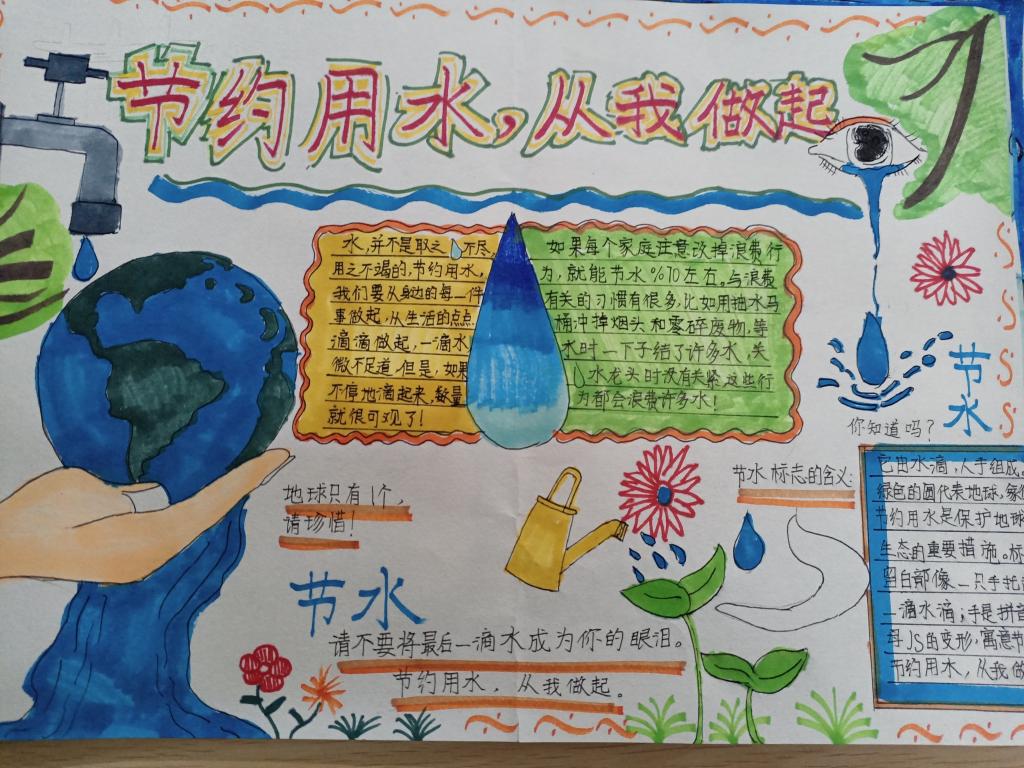 节约用水，从我做起
水，并不是取之不尽，
用之不竭的，节约用水，
我们要从身边的每一件
事做起，从生活的点点
滴滴做起，一滴水
微不足道，但是，如果
不停地滴起来，数量
就很可观了！
如果每个家庭注意改掉浪费行
为，就能节水%70左右。与浪费
有关的习惯有很多，比如用抽水马
桶冲掉烟头和零碎废物，等
水时一下子结了许多水，关
水龙头时没有关紧，这些行
为都会浪费许多水！
节水
你知道吗？
地球只有1个，
请珍惜！
节水标志的含义：
它由水滴，人手组成
绿色的圆代表地球，象
节约用水是保护地球
生态的重要措施。标
留白部像一只手托
一滴水滴；手是拼音
母JS的变形，寓意节
节约用水，从我做
节水
请不要将最后一滴水成为你的眼泪。
节约用水，从我做起。